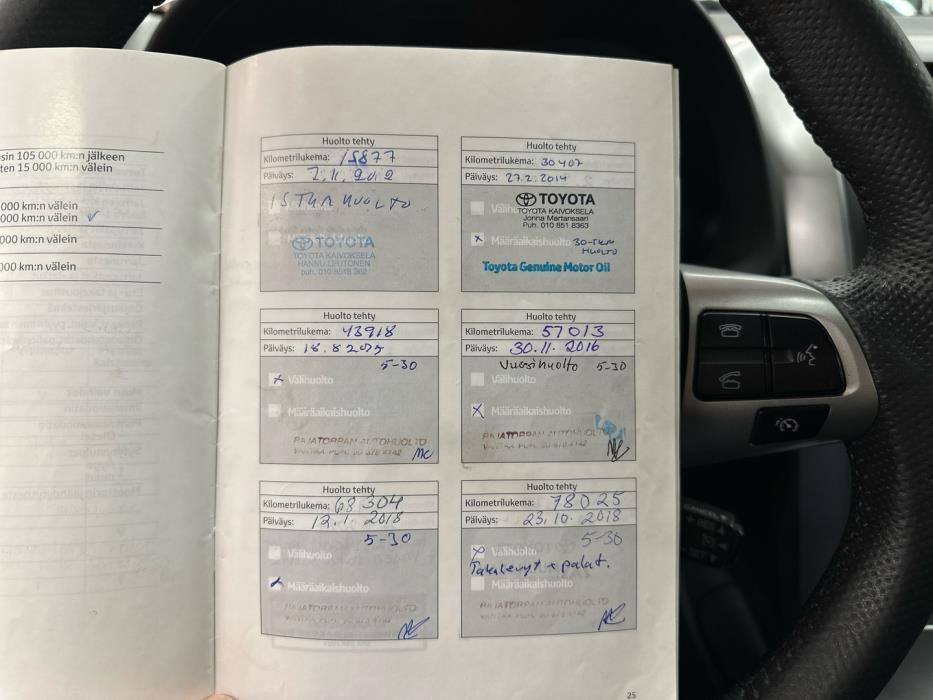 sin 105 000 km:n jälkeen
ten 15 000 km:n välein
000 km:n välein
000 km:n välein
000 km:n välein
000 km:n välein
Huolto tehty
Kilometrilukema: 15877
Päiväys:
15 TKM HUOLTO
TOYOTA
TOYOTA KAIVOKSELA
HANNU LEUTONEN
puh. 010 8518 362
Huolto tehty
Kilometrilukema: 30407
Päiväys: 27.2.2014
Välihuolto
TOYOTA
TOYOTA KAIVOKSELA
Jonna Martansaari
Puh. 010 851 8363
x Määräaikaishuolto 30-TKM
HUOLTO
Toyota Genuine Motor Oil
Huolto tehty
Kilometrilukema: 43918
Päiväys: 18.8.2015
5-30
x Välihuolto
Määräaikaishuolto
RAJATORPAN AUTOHUOLTO
Huolto tehty
Kilometrilukema: 57013
Päiväys: 30.11.2016
Vuosihuolto 5-30
Välihuolto
x Määräaikaishuolto
RAJATORPAN AUTOHUOLTO
Huolto tehty
Kilometrilukema: 68304
Päiväys: 12.1.2018
5-30
Välihuolto
Määräaikaishuolto
RAJATORPAN AUTOHUOLTO
Huolto tehty
Kilometrilukema: 78025
Päiväys: 23.10.2018
5-30
x Välihuolto
Takalevyt + palat.
Määräaikaishuolto
RAJATORPAN AUTOHUOLTO
25